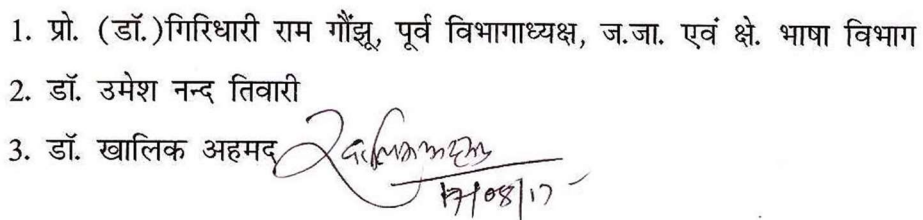 1. प्रो. (डॉ.)गिरिधारी राम गौंझू, पूर्व विभागाध्यक्ष, ज.जा. एवं क्षे. भाषा विभाग
2. डॉ. उमेश नन्द तिवारी
3. डॉ. खालिक अहमद
17/08/17